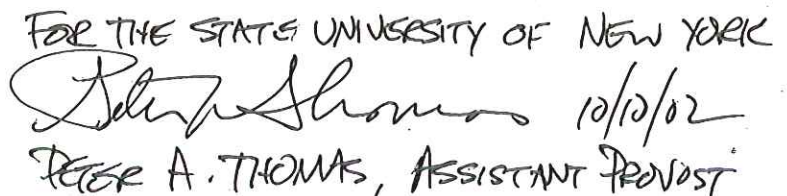 FOR THE STATE UNIVERSITY OF NEW YORK
Peter A. Thomas 10/10/02
PETER A. THOMAS, ASSISTANT PROVOST